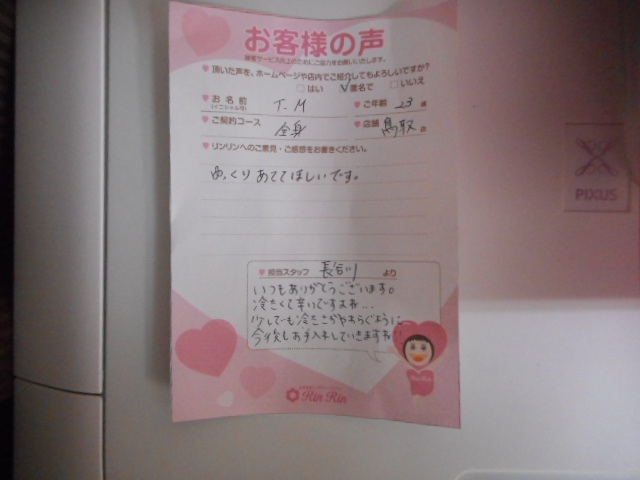 お客様の声
顧客サービス向上のためにご協力をお願いいたします。
頂いた声を、ホームページや店内でご紹介してもよろしいですか?
はい 匿名で いいえ
お名前 T.M ご年齢 23 歳
(イニシャル可)
ご契約コース 全身 店舗 鳥取 店
リンリンへのご意見・ご感想をお書きください。
ゆっくりあててほしいです。
担当スタッフ 長谷川 より
いつもありがとうございます。
冷たくて辛いですよね...
少しでも冷たさがやわらぐように
今後もお手入れしていきますね!!
Rin Rin
PIXUS